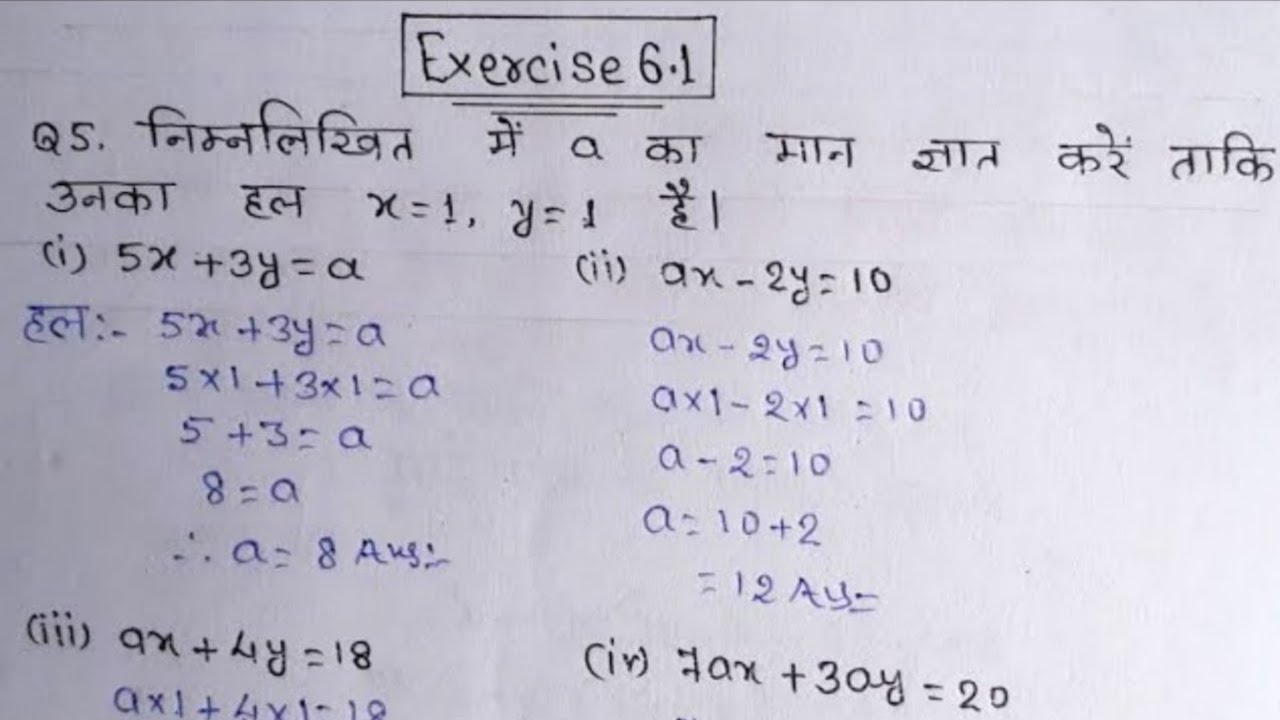 Exercise 6.1
Q5. निम्नलिखित में a का मान ज्ञात करें ताकि
उनका हल x=1, y=1 है।
(i) 5x+3y=a
(ii) ax-2y=10
हल:- 5x+3y=a
5×1+3×1=a
5+3=a
8=a
∴ a=8 Ans:-
ax-2y=10
a×1-2×1=10
a-2=10
a=10+2
=12 Ans=
(iii) ax+4y=18
a×1+4×1=18
(iv) 7ax+3ay=20